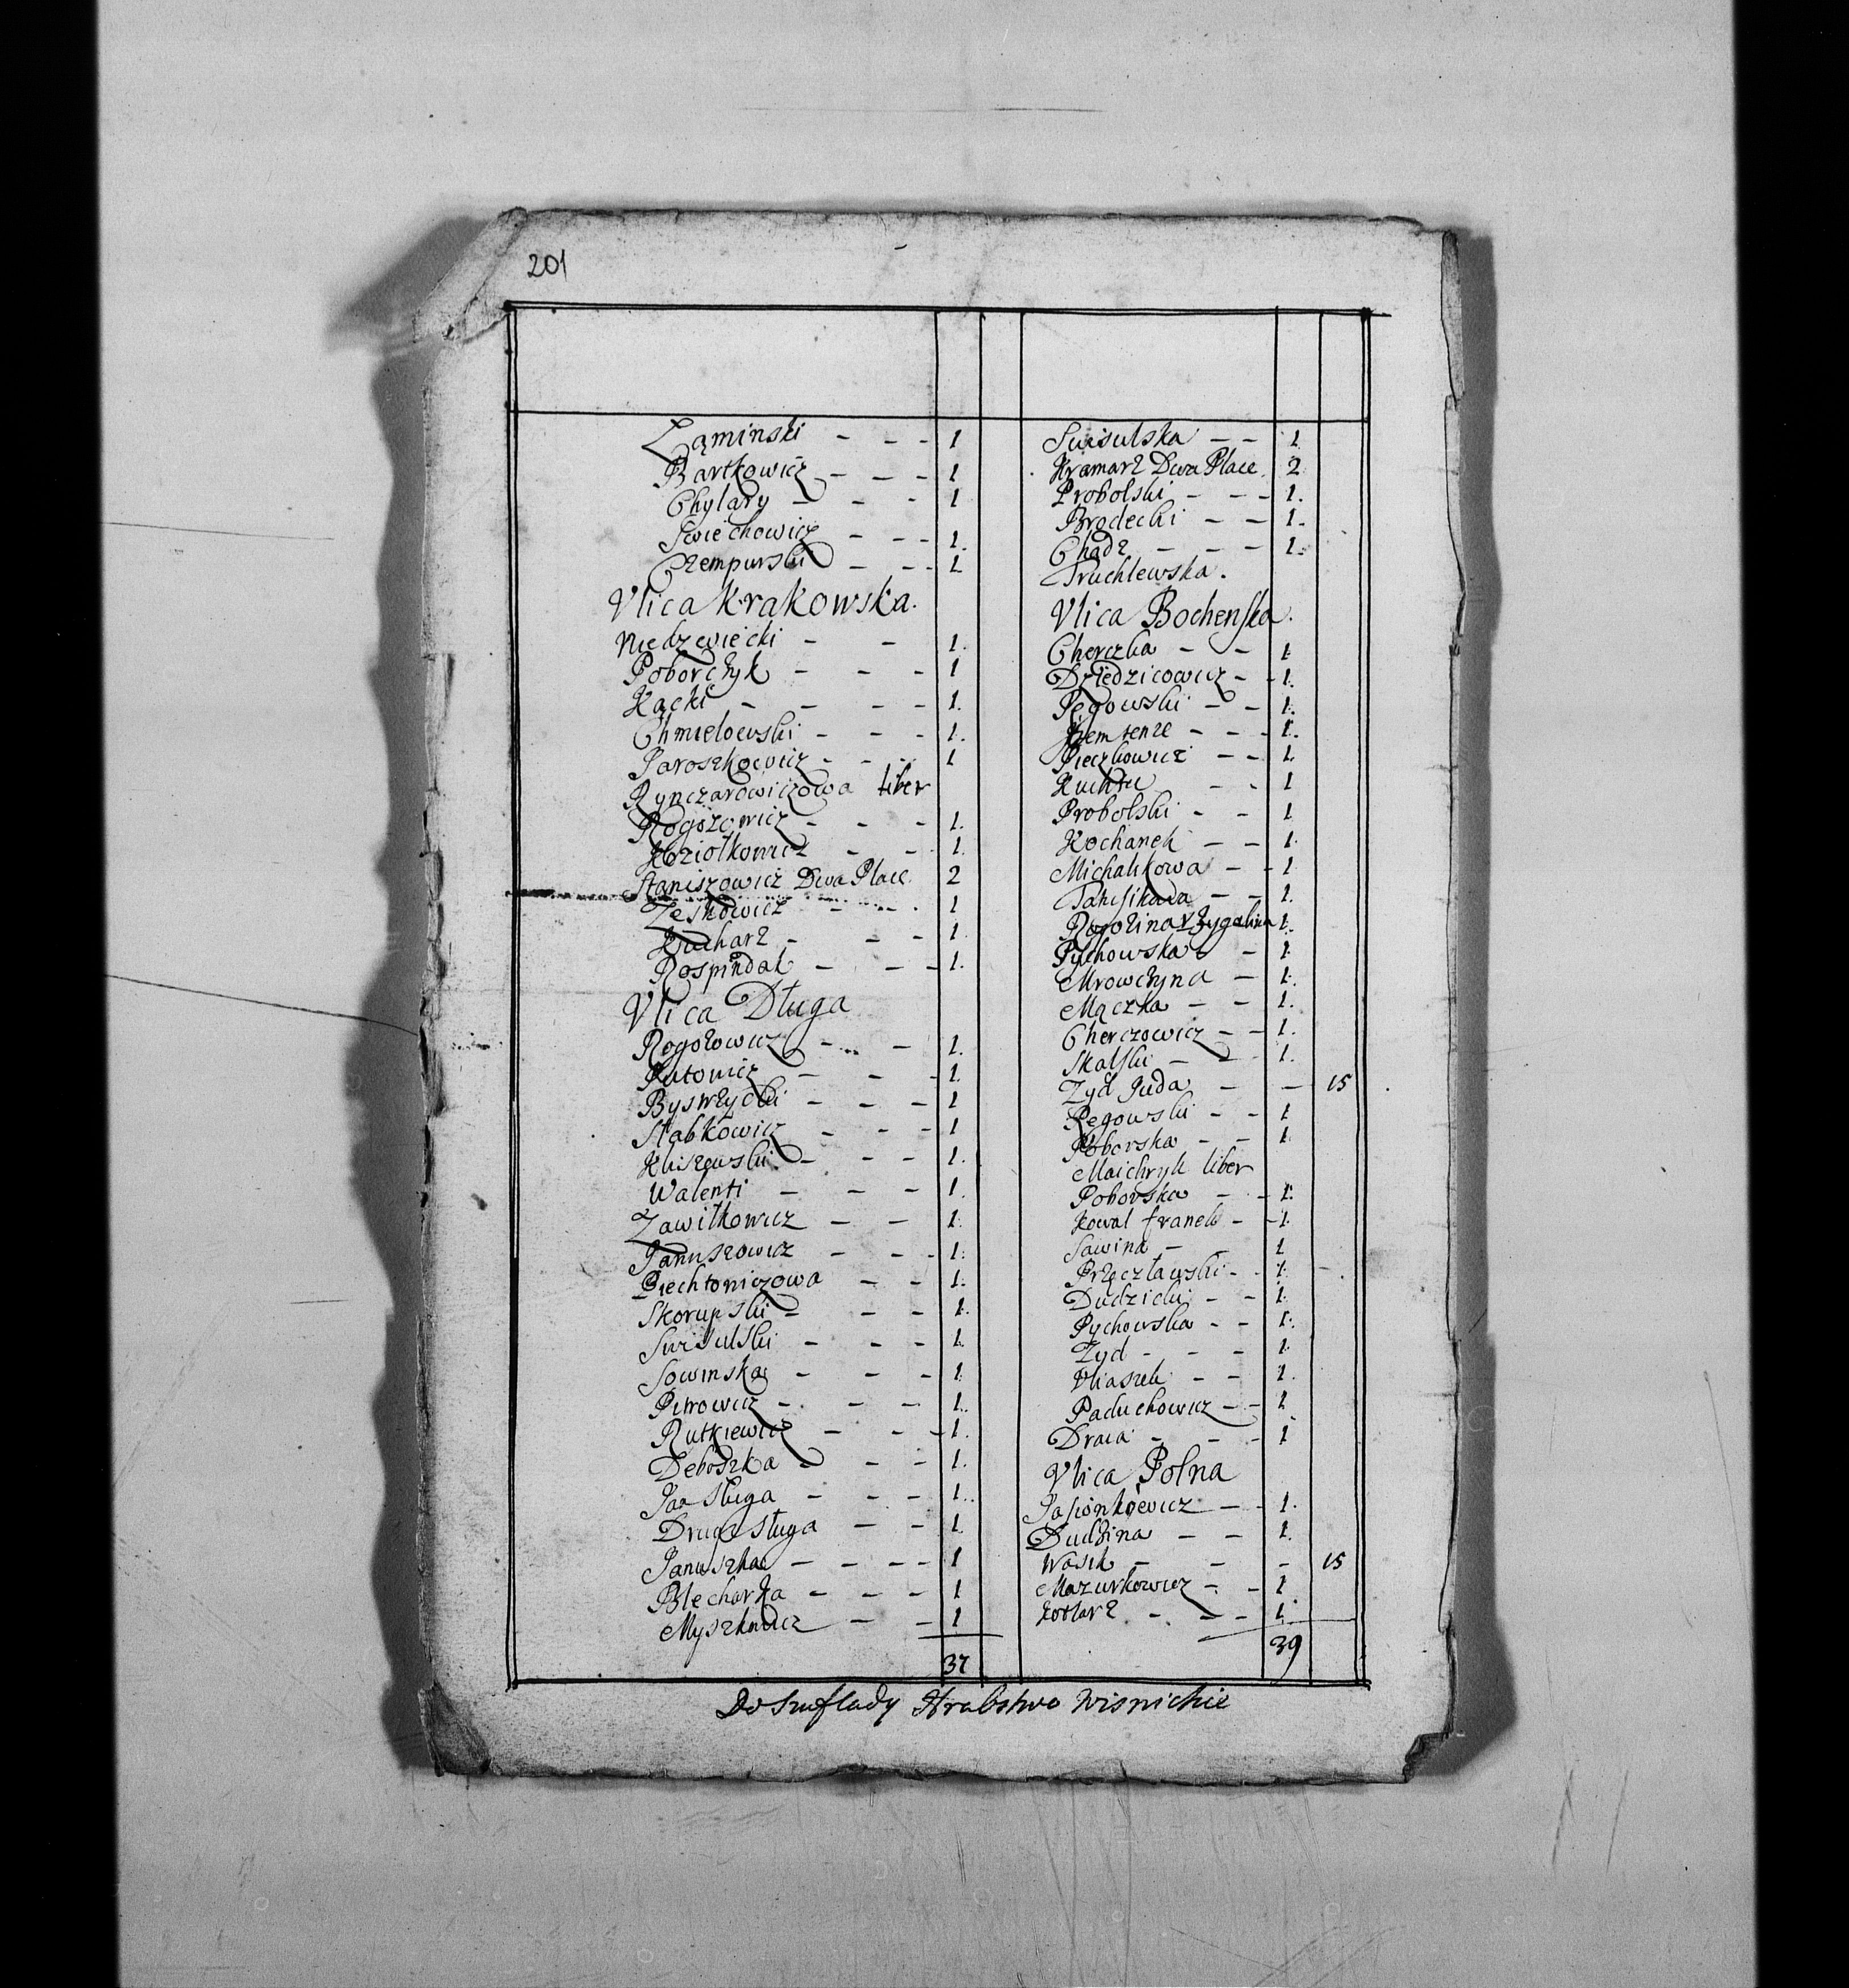 201
Ząminski - - - 1
Bartkowicz - - - 1
Chylary - - - 1
Swiechowicz - - - 1.
Czempurski - - - 1
Vlica Krakowska.
Niedzwiecki - - 1.
Poborczyk - - - 1
Kącki - - - - 1.
Chmielowski - - - 1.
Jaroszkowicz - - - 1
Rynczarowiczowa liber
Rogozowicz - - - 1.
Koziołkowicz - - 1.
Staniszowicz Dwa Place. 2
Zeskowicz - - - 1
Kucharz - - - 1.
Rospindak - - - 1.
Vlica Długa
Rogozowicz - - - 1.
Rutowicz - - - 1.
Bystrzycki - - - 1
Słabkowicz - - - 1
Kliszewski - - - 1.
Walenti - - - 1.
Zawiłkowicz - - 1.
Januszowicz - - - 1.
Piechtoniczowa - - 1.
Skorupski - - - 1.
Swisulski - - - 1.
Sowinska - - - 1.
Pirowicz - - - 1.
Rutkiewicz - - - 1.
Deboszka - - - 1.
Sługa - - - 1.
Druga Sługa - - 1.
Januszka - - - - 1
Blecharka - - - 1
Myszkowicz - - 1
37
Swisulska - - 1.
Kramarz Dwa Place. 2
Probolski - - - 1.
Brodecki - - 1.
Chadz - - - 1.
Truchlewska.
Vlica Bochenska.
Cherczka - - 1.
Dziedzicowicz - - 1.
Pęgowski - - 1.
- - - 1.
Pieczkowicz - - 1.
Kuchta - - 1
Probolski - - 1
Kochanek - - 1.
Michalikowa - - 1
- - 1.
Rogozina V Zygalina 1.
Pychowska - 1.
Mrowczyna - 1.
Mączka - - 1.
Cherczowicz - - 1.
Skalski - - 1.
Zyd Juda - - 15
Pęgowski - - 1
Poborska - - 1.
Maichryk liber
Poborska - - 1.
Kowal franek - - 1.
Sawina - - 1
Przęczławski - - 1.
Dudzicki - - 1.
Pychowska - - 1.
Zyd - - - 1.
Vliaszek - - 1.
Paduchowicz - - 1
Draia - - - 1
Vlica Polna
Jasionkiewicz - - 1.
Dudzina - - 1.
Wasik - - - 15
Mazurkowicz - - 1
Kotlarz - - - 1.
39
Do szuflady Hrabstwo Wisnickie